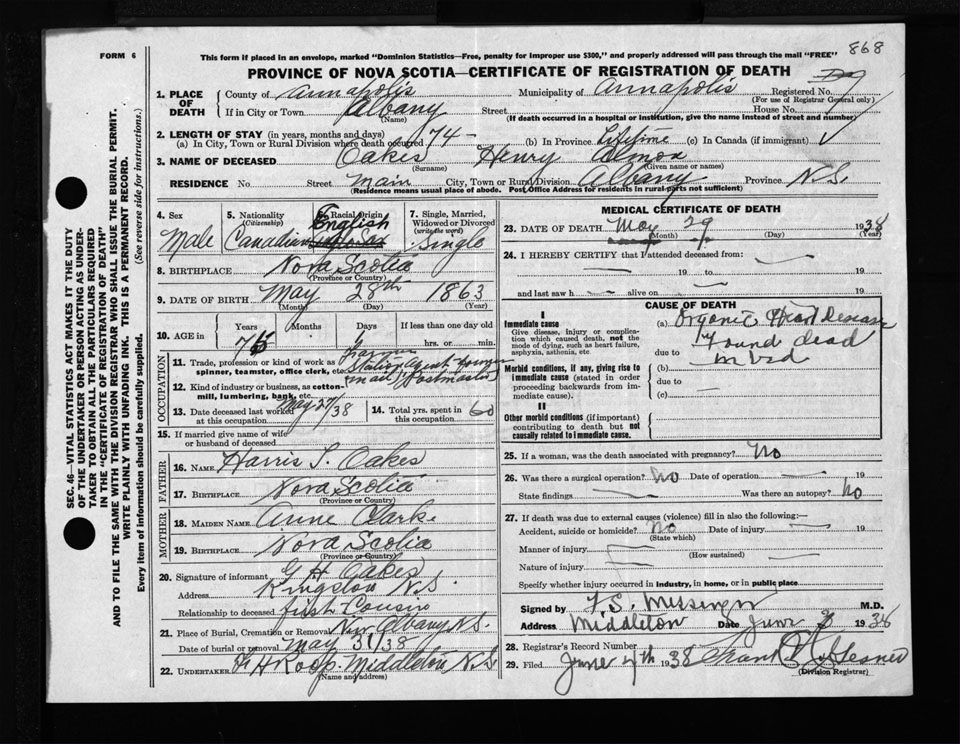 868
FORM 6
This form if placed in an envelope, marked "Dominion Statistics—Free, penalty for improper use $300," and properly addressed will pass through the mail "FREE"
PROVINCE OF NOVA SCOTIA—CERTIFICATE OF REGISTRATION OF DEATH
1. PLACE OF DEATH
County of Annapolis Municipality of Annapolis Registered No.
(For use of Registrar General only)
If in City or Town Albany Street House No.
(Name) (If death occurred in a hospital or institution, give the name instead of street and number)
2. LENGTH OF STAY (in years, months and days)
(a) In City, Town or Rural Division where death occurred 74 - (b) In Province Lifetime (c) In Canada (if immigrant)
3. NAME OF DECEASED Oakes Henry Almon
(Surname) (Given name or names)
RESIDENCE No. Street Main City, Town or Rural Division Albany Province N.S.
(Residence means usual place of abode. Post Office Address for residents in rural parts not sufficient)
4. Sex Male
5. Nationality (Citizenship) Canadian
6. Racial Origin English
7. Single, Married, Widowed or Divorced (write the word) Single
8. BIRTHPLACE Nova Scotia
(Province or Country)
9. DATE OF BIRTH May 28th 1863
(Month) (Day) (Year)
10. AGE in Years Months Days If less than one day old
75 1 hrs. or min.
OCCUPATION
11. Trade, profession or kind of work as spinner, teamster, office clerk, etc. Farmer Station agent
12. Kind of industry or business, as cotton-mill, lumbering, bank, etc. Postmaster
13. Date deceased last worked at this occupation May 27/38
14. Total yrs. spent in this occupation 60
15. If married give name of wife or husband of deceased
FATHER
16. NAME Harris S. Oakes
17. BIRTHPLACE Nova Scotia
(Province or Country)
MOTHER
18. MAIDEN NAME Anne Clark
19. BIRTHPLACE Nova Scotia
(Province or Country)
20. Signature of informant G H Oakes
Address Kingston N.S.
Relationship to deceased first Cousin
21. Place of Burial, Cremation or Removal New Albany N.S.
Date of burial or removal May 31/38
22. UNDERTAKER H H Roop Middleton N.S.
(Name and address)
MEDICAL CERTIFICATE OF DEATH
23. DATE OF DEATH May 29 1938
(Month) (Day) (Year)
24. I HEREBY CERTIFY that I attended deceased from
19 to 19
and last saw h alive on 19
CAUSE OF DEATH
I
Immediate cause
Give disease, injury or complication which caused death, not the mode of dying, such as heart failure, asphyxia, asthenia, etc
(a) Organic Heart Disease
Found dead
due to in bed
Morbid conditions, if any, giving rise to immediate cause (stated in order proceeding backwards from immediate cause).
(b)
due to
(c)
II
Other morbid conditions (if important) contributing to death but not causally related to immediate cause.
25. If a woman, was the death associated with pregnancy? No
26. Was there a surgical operation? No Date of operation 19
State findings Was there an autopsy? No
27. If death was due to external causes (violence) fill in also the following:—
Accident, suicide or homicide? No Date of injury 19
(State which)
Manner of injury
(How sustained)
Nature of injury
Specify whether injury occurred in industry, in home, or in public place
Signed by F. S. Messenger M.D.
Address Middleton Date June 1938
28. Registrar's Record Number
29. Filed June 4th 1938
(Division Registrar)
SEC. 46—VITAL STATISTICS ACT MAKES IT THE DUTY
OF THE UNDERTAKER OR PERSON ACTING AS UNDER-
TAKER TO OBTAIN ALL THE PARTICULARS REQUIRED
IN THE "CERTIFICATE OF REGISTRATION OF DEATH"
AND TO FILE THE SAME WITH THE DIVISION REGISTRAR WHO SHALL ISSUE THE BURIAL PERMIT.
WRITE PLAINLY WITH UNFADING INK. THIS IS A PERMANENT RECORD.
Every item of information should be carefully supplied. (See reverse side for instructions.)